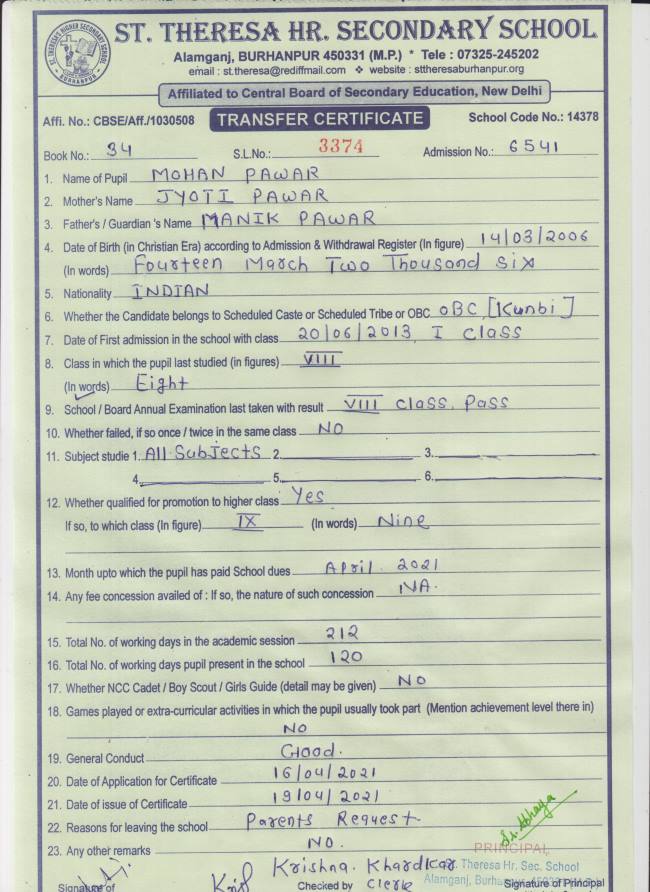 ST. THERESA HR. SECONDARY SCHOOL
Alamganj, BURHANPUR 450331 (M.P.) * Tele : 07325-245202
email : st.theresa@rediffmail.com ❖ website : sttheresaburhanpur.org
Affiliated to Central Board of Secondary Education, New Delhi
Affi. No.: CBSE/Aff./1030508 TRANSFER CERTIFICATE School Code No.: 14378
Book No.: 34 S.L.No.: 3374 Admission No.: 6541
1. Name of Pupil MOHAN PAWAR
2. Mother's Name JYOTI PAWAR
3. Father's / Guardian 's Name MANIK PAWAR
4. Date of Birth (in Christian Era) according to Admission & Withdrawal Register (In figure) 14/03/2006
(In words) Fourteen March Two Thousand Six
5. Nationality INDIAN
6. Whether the Candidate belongs to Scheduled Caste or Scheduled Tribe or OBC OBC [Kunbi]
7. Date of First admission in the school with class 20/06/2013, I class
8. Class in which the pupil last studied (in figures) VIII
(In words) Eight
9. School / Board Annual Examination last taken with result VIII class, Pass
10. Whether failed, if so once / twice in the same class NO
11. Subject studie 1. All Subjects 2. 3.
4. 5. 6.
12. Whether qualified for promotion to higher class Yes
If so, to which class (In figure) IX (In words) Nine
13. Month upto which the pupil has paid School dues April. 2021
14. Any fee concession availed of : If so, the nature of such concession NA.
15. Total No. of working days in the academic session 212
16. Total No. of working days pupil present in the school 120
17. Whether NCC Cadet / Boy Scout / Girls Guide (detail may be given) NO
18. Games played or extra-curricular activities in which the pupil usually took part (Mention achievement level there in)
NO
19. General Conduct Good.
20. Date of Application for Certificate 16/04/2021
21. Date of issue of Certificate 19/04/2021
22. Reasons for leaving the school Parents Request.
23. Any other remarks NO.
PRINCIPAL
Krishna. Khardkar Theresa Hr. Sec. School
Signature of Checked by Clerk Alamganj, Signature of Principal